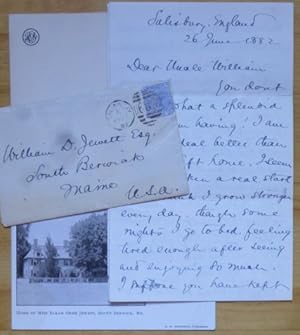 Salisbury, England
26 June 1882
Dear Uncle William
You don't
what a splendid
having! I am
deal better than
left home. I seem
taken a real start
I grow stronger
every day though some
nights I go to bed feeling
tired enough after seeing
and enjoying so much.
I suppose you have kept
William D. Jewett Esq.
South Berwick
Maine
U.S.A.
HOME OF MISS SARAH ORNE JEWETT, SOUTH BERWICK, ME.